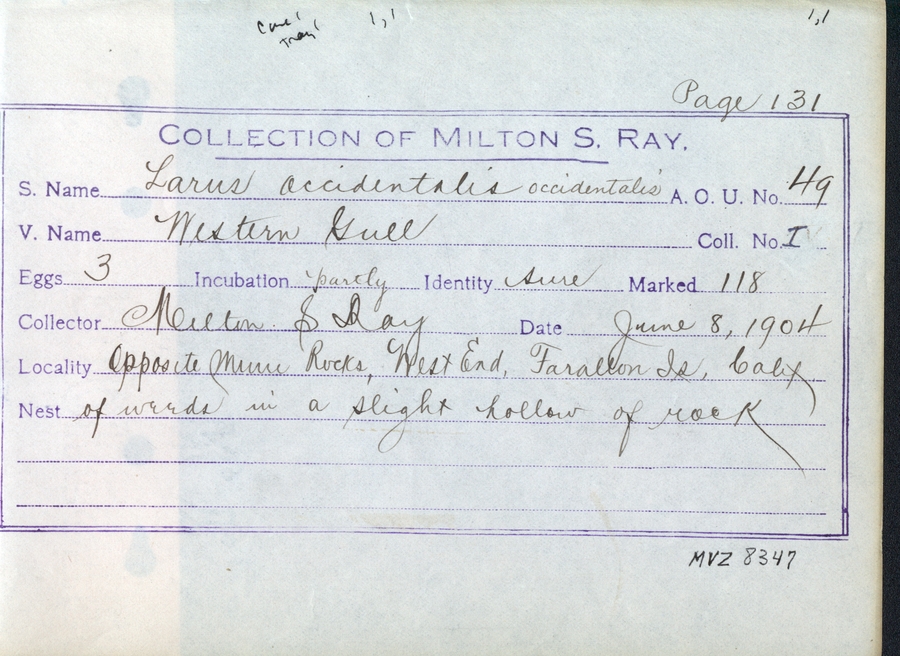 1,1 1,1
Page 131
COLLECTION OF MILTON S. RAY.
S. Name Larus occidentalis occidentalis A. O. U. No. 49
V. Name Western Gull Coll. No. I
Eggs 3 Incubation partly Identity sure Marked 118
Collector Milton S Ray Date June 8, 1904
Locality Opposite Murre Rocks, West End, Farallon Is, Calif
Nest of weeds in a slight hollow of rock
MVZ 8347